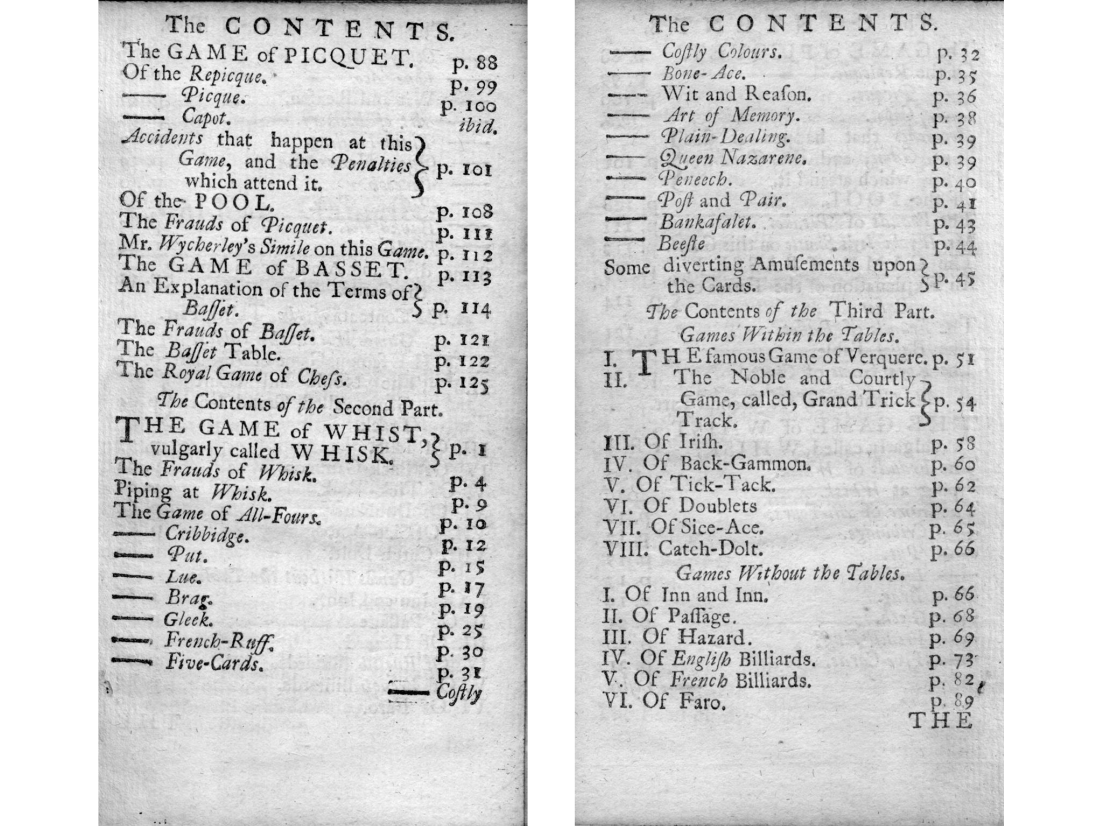 The CONTENTS.
The GAME of PICQUET. p. 88
Of the Repicque. p. 99
—— Picque. p. 100
—— Capot. ibid.
Accidents that happen at this
Game, and the Penalties p. 101
which attend it.
Of the POOL. p. 108
The Frauds of Picquet. p. 111
Mr. Wycherley's Simile on this Game. p. 112
The GAME of BASSET. p. 113
An Explanation of the Terms of
Baſſet. p. 114
The Frauds of Baſſet. p. 121
The Baſſet Table. p. 122
The Royal Game of Cheſs. p. 125
The Contents of the Second Part.
THE GAME of WHIST,
vulgarly called WHISK. p. 1
The Frauds of Whisk. p. 4
Piping at Whisk. p. 9
The Game of All-Fours. p. 10
—— Cribbidge. p. 12
—— Put. p. 15
—— Lue. p. 17
—— Brag. p. 19
—— Gleek. p. 25
—— French-Ruff. p. 30
—— Five-Cards. p. 31
—— Coſtly
The CONTENTS.
—— Coſtly Colours. p. 32
—— Bone-Ace. p. 35
—— Wit and Reaſon. p. 36
—— Art of Memory. p. 38
—— Plain-Dealing. p. 39
—— Queen Nazarene. p. 39
—— Peneech. p. 40
—— Poſt and Pair. p. 41
—— Bankafalet. p. 43
—— Beeſte p. 44
Some diverting Amuſements upon
the Cards. p. 45
The Contents of the Third Part.
Games Within the Tables.
I. THE famous Game of Verquere. p. 51
II. The Noble and Courtly
Game, called, Grand Trick p. 54
Track.
III. Of Iriſh. p. 58
IV. Of Back-Gammon. p. 60
V. Of Tick-Tack. p. 62
VI. Of Doublets p. 64
VII. Of Sice-Ace. p. 65
VIII. Catch-Dolt. p. 66
Games Without the Tables.
I. Of Inn and Inn. p. 66
II. Of Paſſage. p. 68
III. Of Hazard. p. 69
IV. Of Engliſh Billiards. p. 73
V. Of French Billiards. p. 82
VI. Of Faro. p. 89
THE